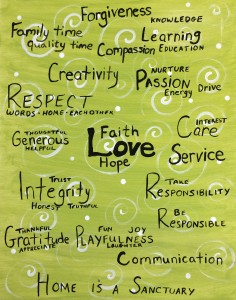 Forgiveness
KNOWLEDGE
Family time
Learning
quality time
Compassion
EDUCATION
Creativity
NURTURE
PASSION
Energy
Drive
RESPECT
WORDS · HOME · EACHOTHER
THOUGHTFUL
Generous
HELPFUL
Faith
Love
Hope
INTEREST
Care
Service
TRUST
Integrity
Honest TRUTHFUL
TAKE
RESPONSIBILITY
BE
RESPONSIBLE
THANKFUL
Gratitude
APPRECIATE
FUN JOY
PLAYFULNESS
LAUGHTER
Communication
HOME IS A SANCTUARY